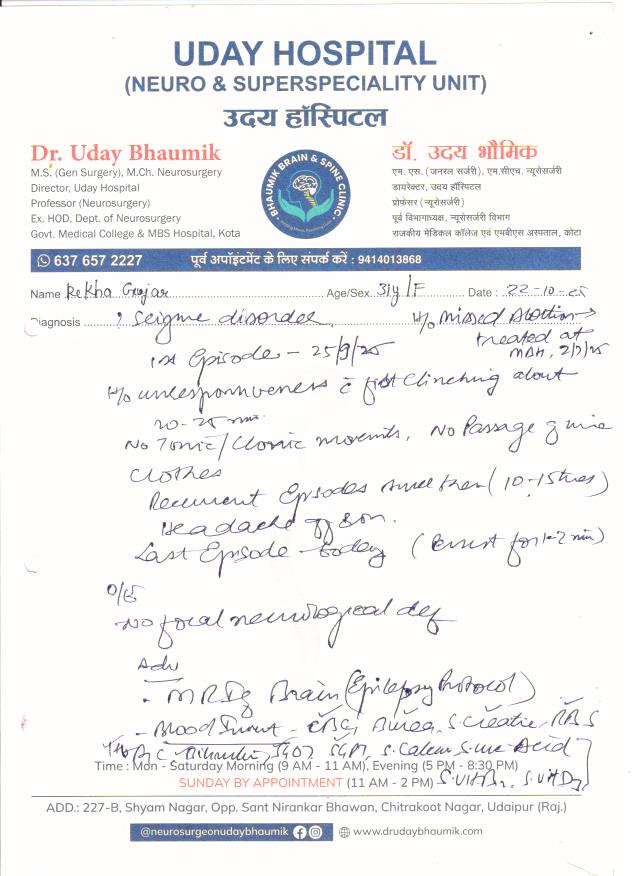 UDAY HOSPITAL
(NEURO & SUPERSPECIALITY UNIT)
उदय हॉस्पिटल
Dr. Uday Bhaumik
M.S. (Gen Surgery), M.Ch. Neurosurgery
Director, Uday Hospital
Professor (Neurosurgery)
Ex. HOD, Dept. of Neurosurgery
Govt. Medical College & MBS Hospital, Kota
BHAUMIK BRAIN & SPINE CLINIC
डॉ. उदय भौमिक
एम. एस. (जनरल सर्जरी), एम.सीएच. न्यूरोसर्जरी
डायरेक्टर, उदय हॉस्पिटल
प्रोफेसर (न्यूरोसर्जरी)
पूर्व विभागाध्यक्ष, न्यूरोसर्जरी विभाग
राजकीय मेडिकल कॉलेज एवं एमबीएस अस्पताल, कोटा
637 657 2227 पूर्व अपॉइंटमेंट के लिए संपर्क करें : 9414013868
Name Rekha Gurjar Age/Sex. 31y/F Date : 22-10-25
Diagnosis ? Seizure disorder H/o Missed Abortion →
treated at
MBH, 2/7/25
1st Episode - 25/9/25
H/o unresponsiveness c̄ fist Clinching about
20-25 min.
No Tonic/Clonic movements, No Passage of urine
Clothes
Recurrent Episodes since then (10-15 times)
Headache off & on.
Last Episode - today ( for 1-2 min)
O/E
No focal neurological def
Adv
- MRI of Brain (Epilepsy Protocol)
- Blood Invest - CBC, B.urea, S.Creatine, RBS
SGOT SGPT, S. Calcium S. uric Acid
Time : Mon - Saturday Morning (9 AM - 11 AM), Evening (5 PM - 8:30 PM)
SUNDAY BY APPOINTMENT (11 AM - 2 PM) S.Vit B12, S.Vit D3
ADD.: 227-B, Shyam Nagar, Opp. Sant Nirankar Bhawan, Chitrakoot Nagar, Udaipur (Raj.)
@neurosurgeonudaybhaumik www.drudaybhaumik.com